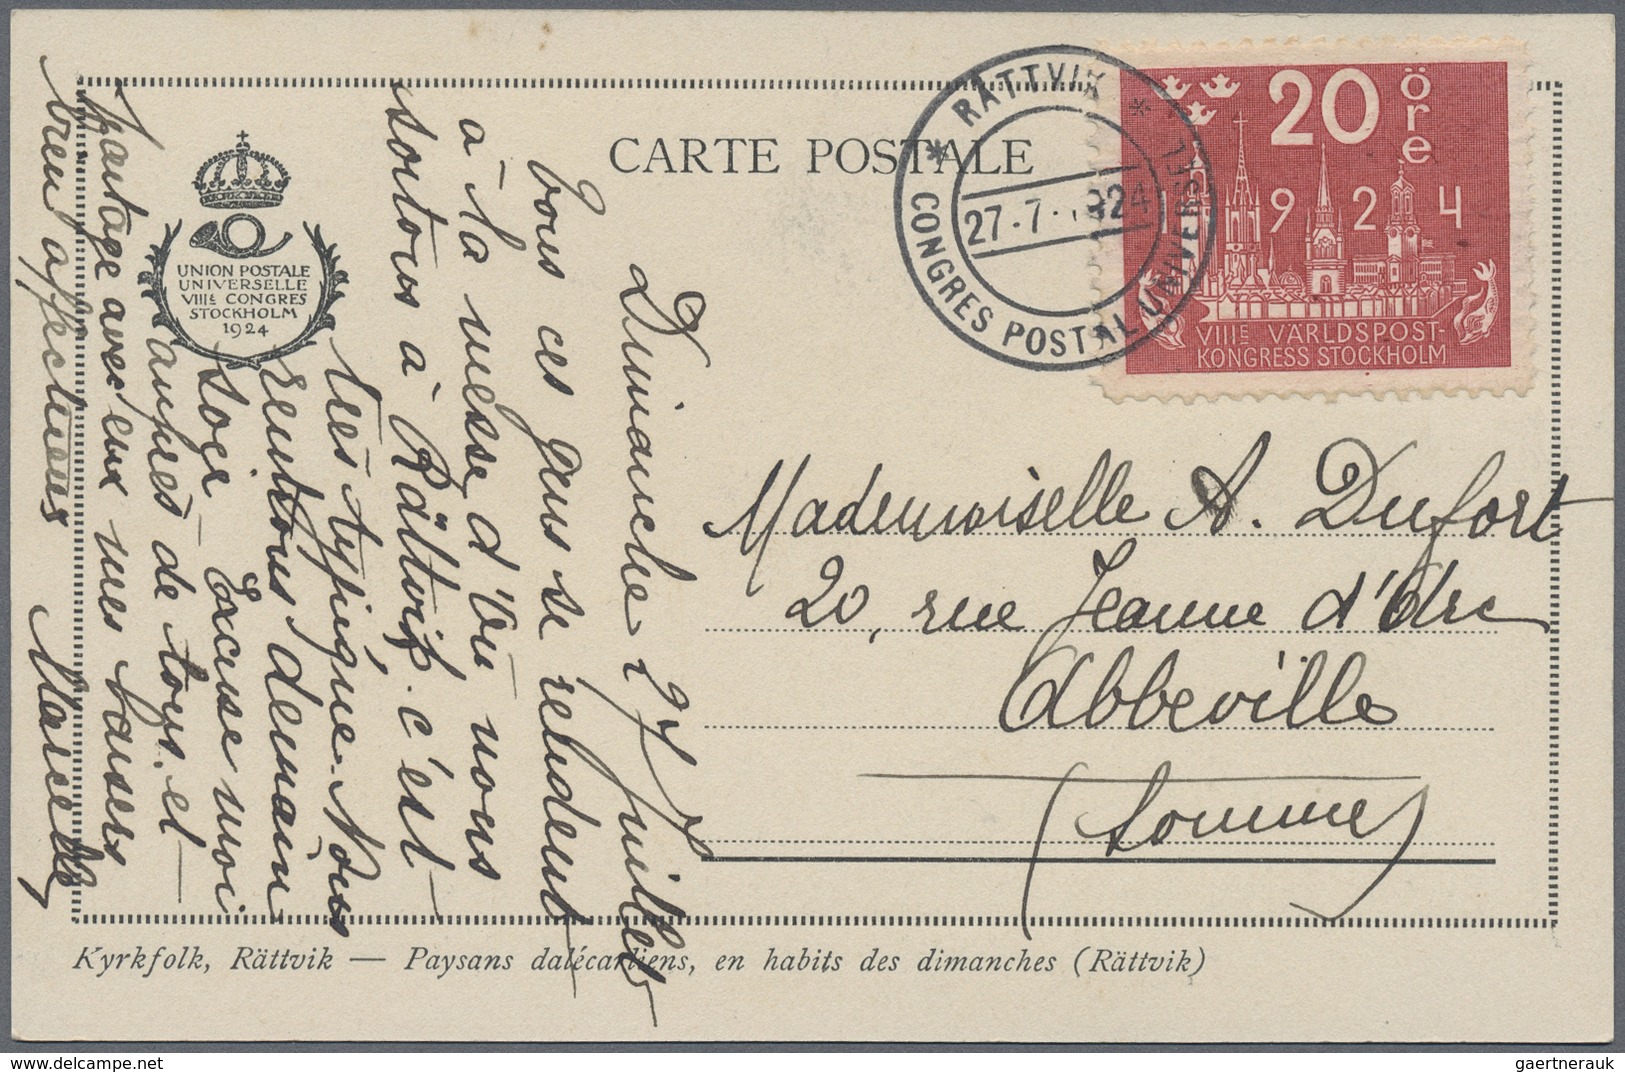 CARTE POSTALE
UNION POSTALE
UNIVERSELLE
VIIIE CONGRES
STOCKHOLM
1924
* RÄTTVIK *
27.7.1924
CONGRES POSTAL UNIVERSEL
20 öre
1924
VIIIE VÄRLDSPOST-
KONGRESS STOCKHOLM
Dimanche 27 Juillet
Tous ces gens se rendent
à la messe d'où nous
sortons à Rättvik. c'est
très typique. Nous
rentrons demain
soir - Excuse moi
auprès de tous et
partage avec eux mes baisers
bien affectueux
Marcelle
Mademoiselle A. Dufort
20, rue Jeanne d'Arc
Abbeville
(Somme)
Kyrkfolk, Rättvik — Paysans dalécarliens, en habits des dimanches (Rättvik)
www.delcampe.net
gaertnerauk